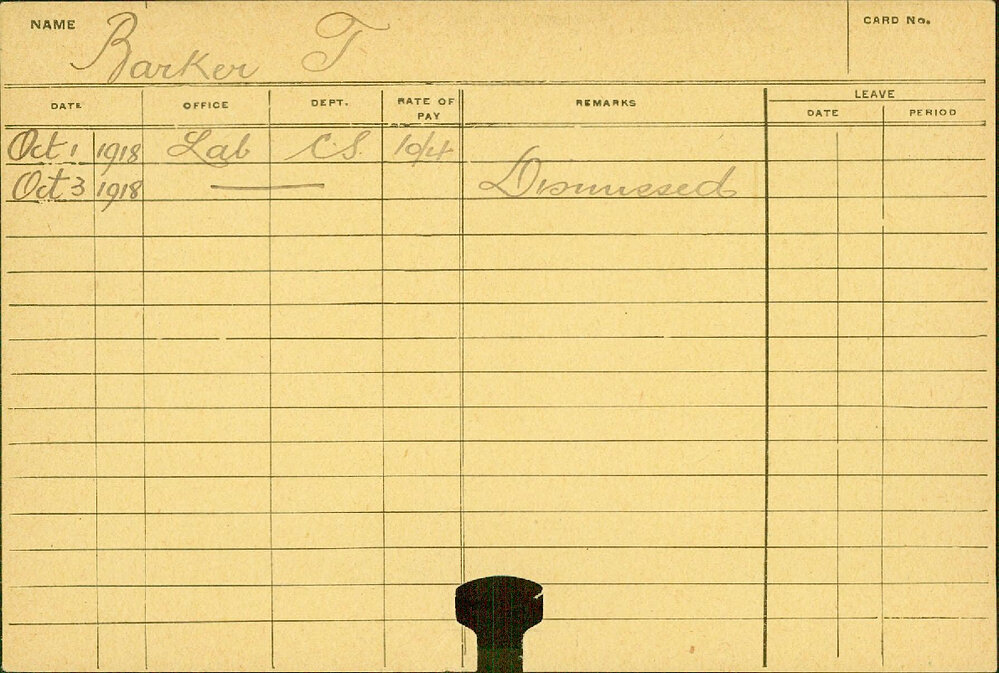 NAME Barker T CARD No.
DATE OFFICE DEPT. RATE OF PAY REMARKS LEAVE
DATE PERIOD
Oct 1 1918 Lab C.S. 10/4
Oct 3 1918 —— Dismissed